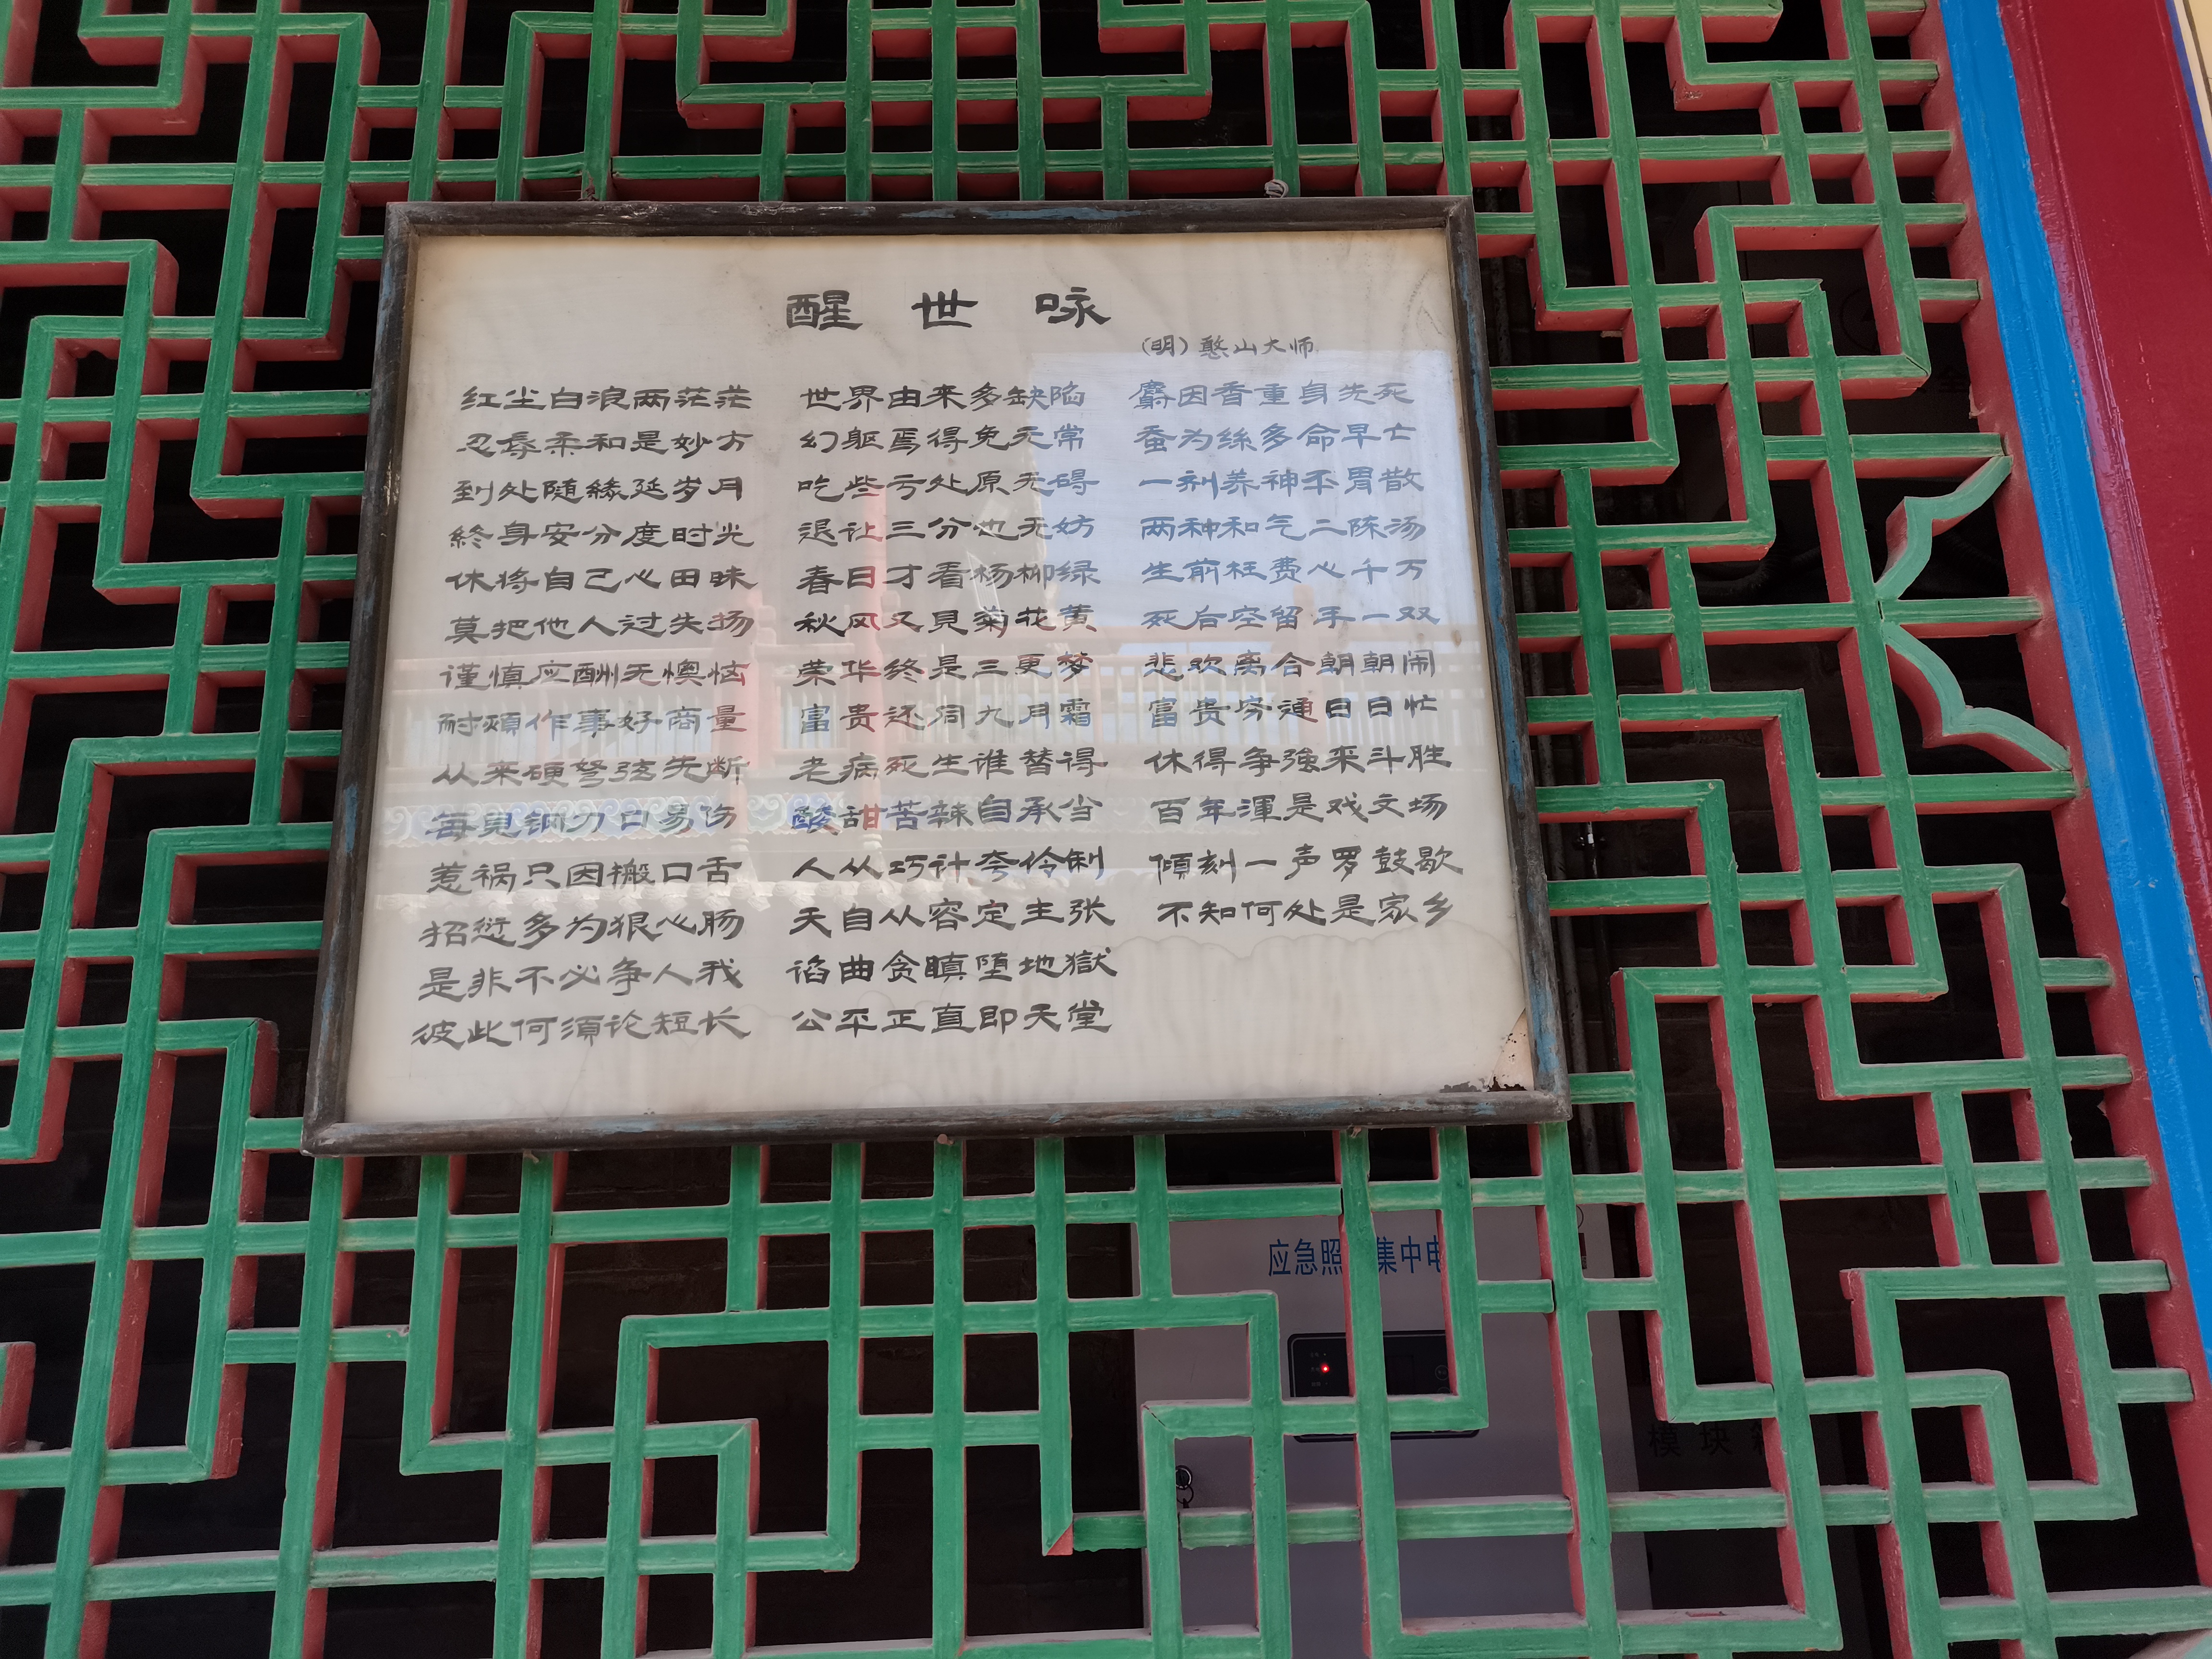 醒世咏
(明)憨山大师
红尘白浪两茫茫
忍辱柔和是妙方
到处随缘延岁月
终身安分度时光
休将自己心田昧
莫把他人过失扬
谨慎应酬无懊恼
耐烦作事好商量
从来硬弩弦先断
每见钢刀口易伤
惹祸只因搬口舌
招愆多为狠心肠
是非不必争人我
彼此何须论短长
世界由来多缺陷
幻躯焉得免无常
吃些亏处原无碍
退让三分也无妨
春日才看杨柳绿
秋风又見菊花黄
荣华终是三更梦
富贵还同九月霜
老病死生谁替得
酸甜苦辣自承当
人从巧计夸伶俐
天自从容定主张
谄曲贪瞋堕地獄
公平正直即天堂
麝因香重身先死
蚕为丝多命早亡
一剂养神平胃散
两种和气二陈汤
生前枉费心千万
死后空留手一双
悲欢离合朝朝闹
富贵穷通日日忙
休得争強来斗胜
百年渾是戏文场
傾刻一声罗鼓歇
不知何处是家乡
应急照 集中电
模块
全